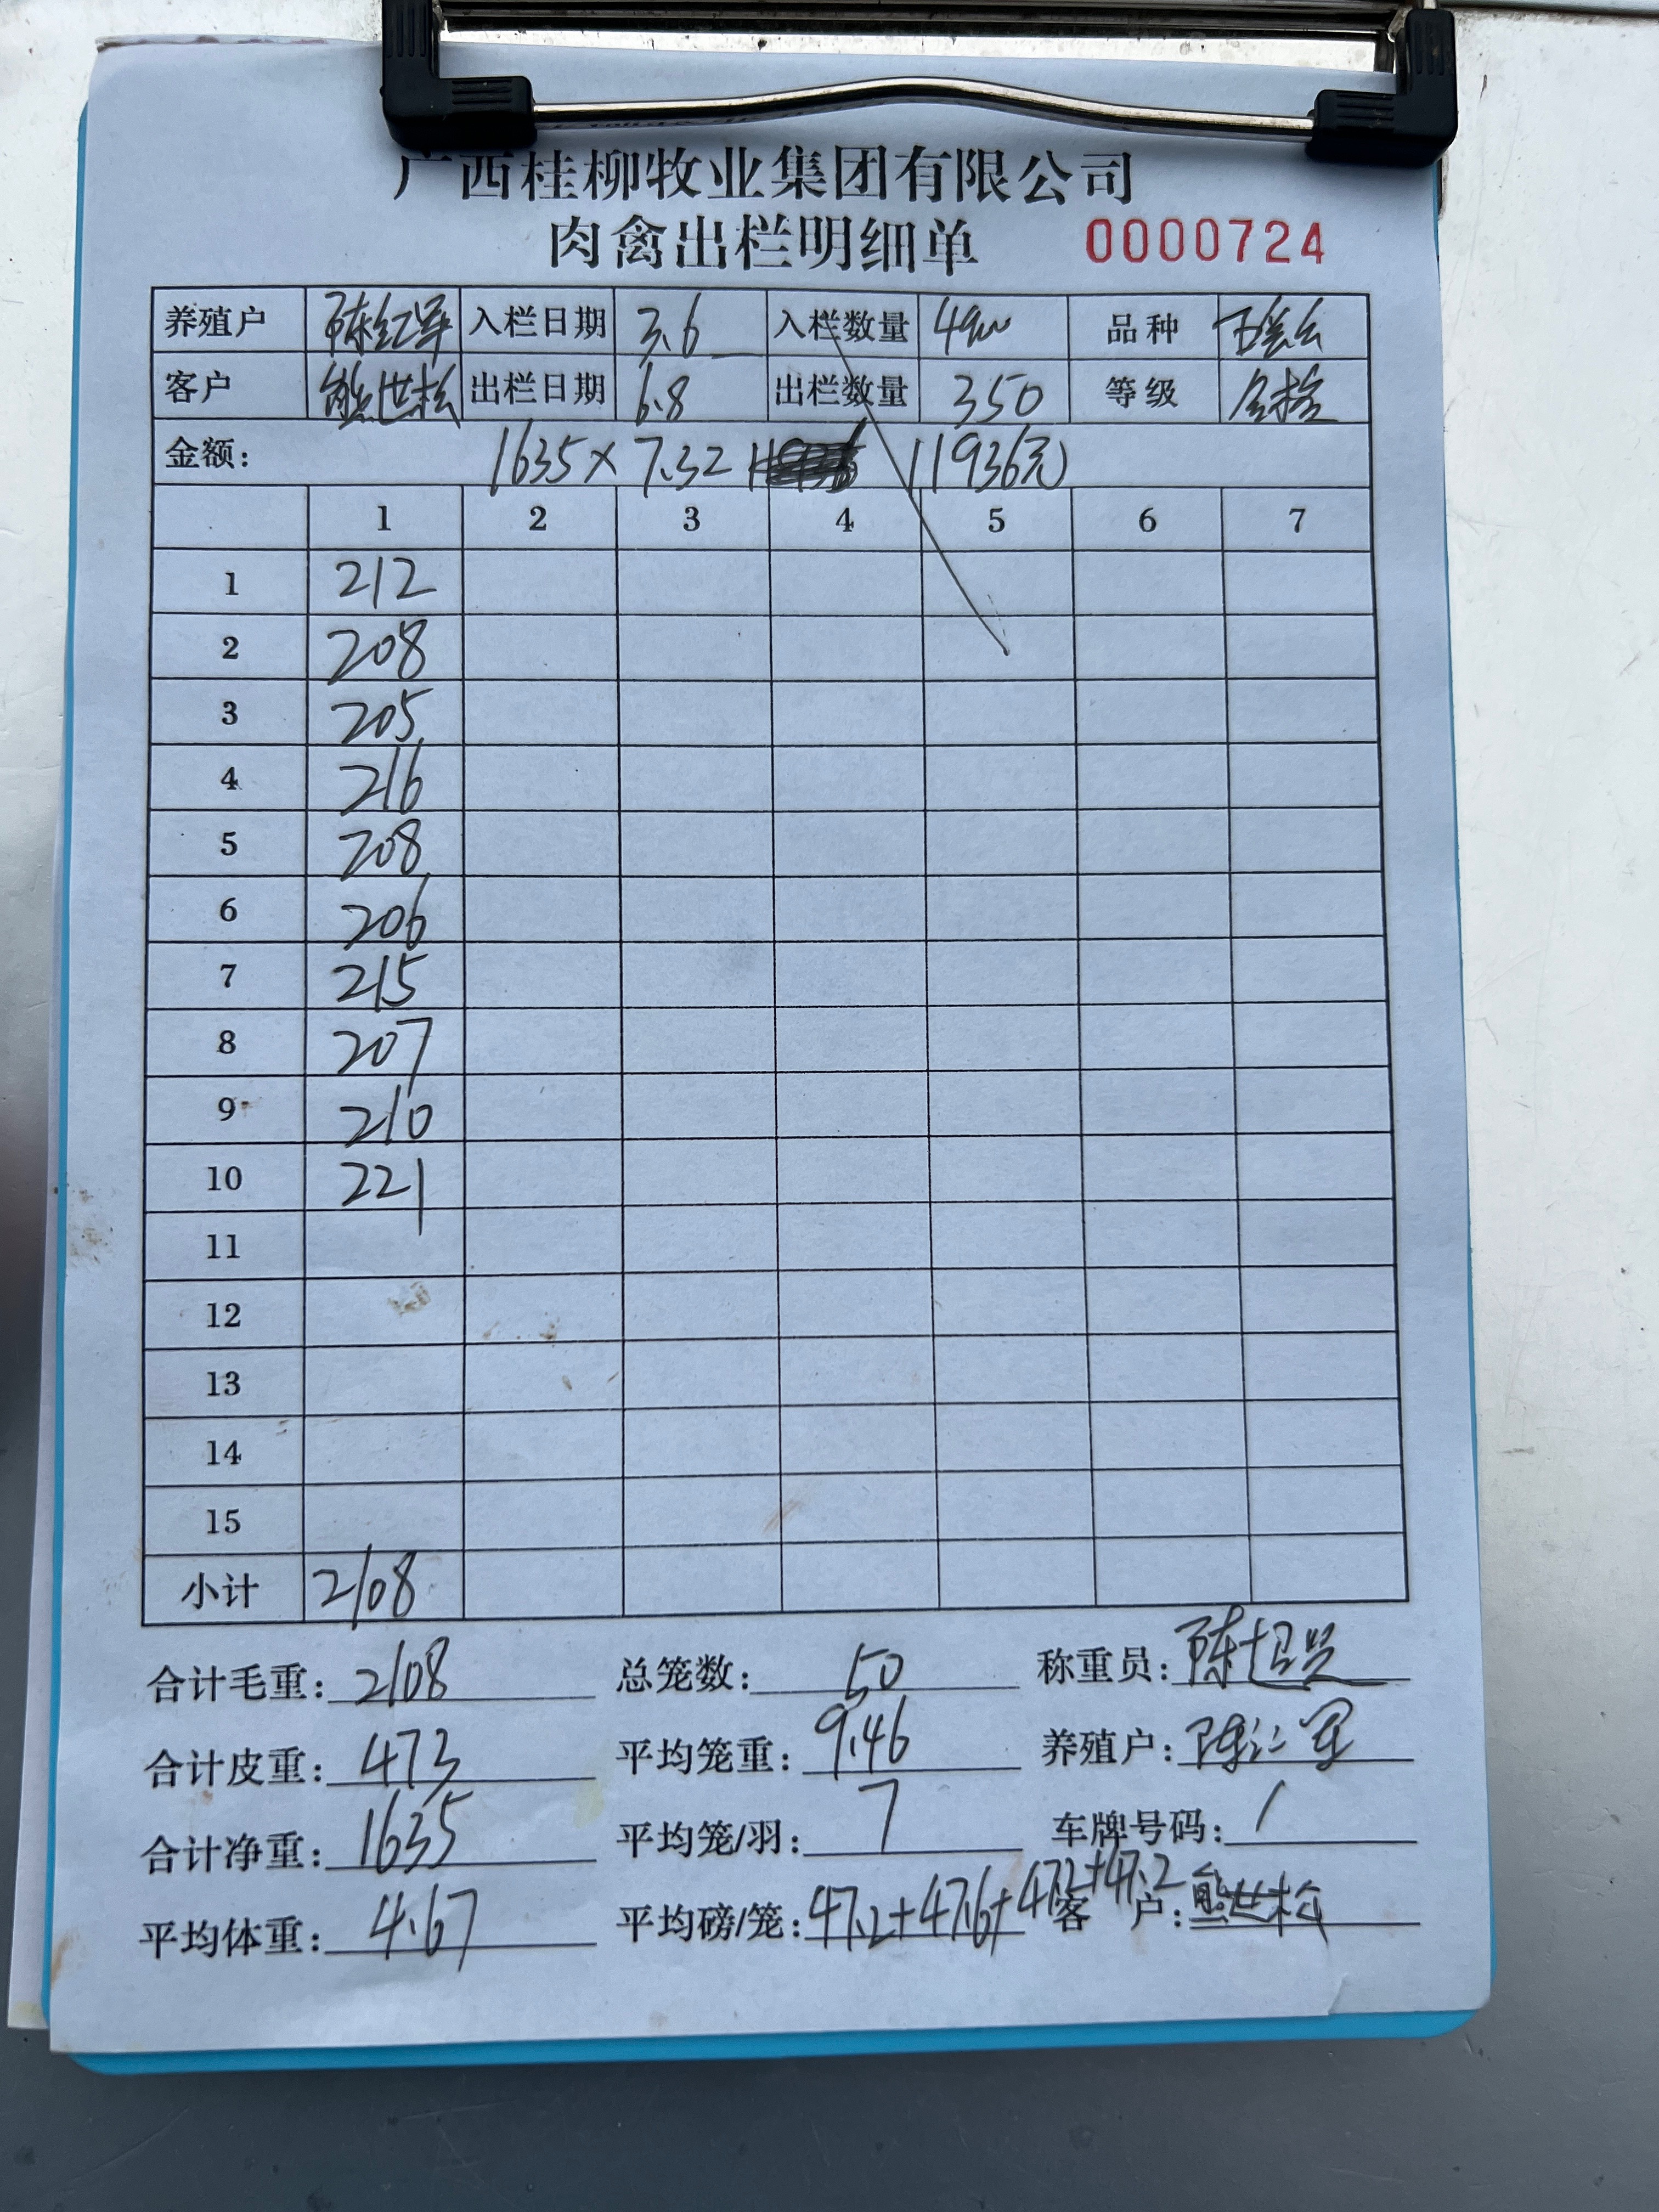 广西桂柳牧业集团有限公司
肉禽出栏明细单 0000724
养殖户 陈红军 入栏日期 3.6 入栏数量 4900 品种
客户 熊世松 出栏日期 6.8 出栏数量 350 等级
金额: 1635×7.32 11936元
1 2 3 4 5 6 7
1 212
2 208
3 205
4 216
5 208
6 206
7 215
8 207
9 210
10 221
11
12
13
14
15
小计 2108
合计毛重: 2108 总笼数: 50 称重员: 陈超
合计皮重: 473 平均笼重: 9.46 养殖户: 陈红军
合计净重: 1635 平均笼/羽: 7 车牌号码: /
平均体重: 4.67 平均磅/笼: 47.2+47.6+47.2+47.2 客户: 熊世松